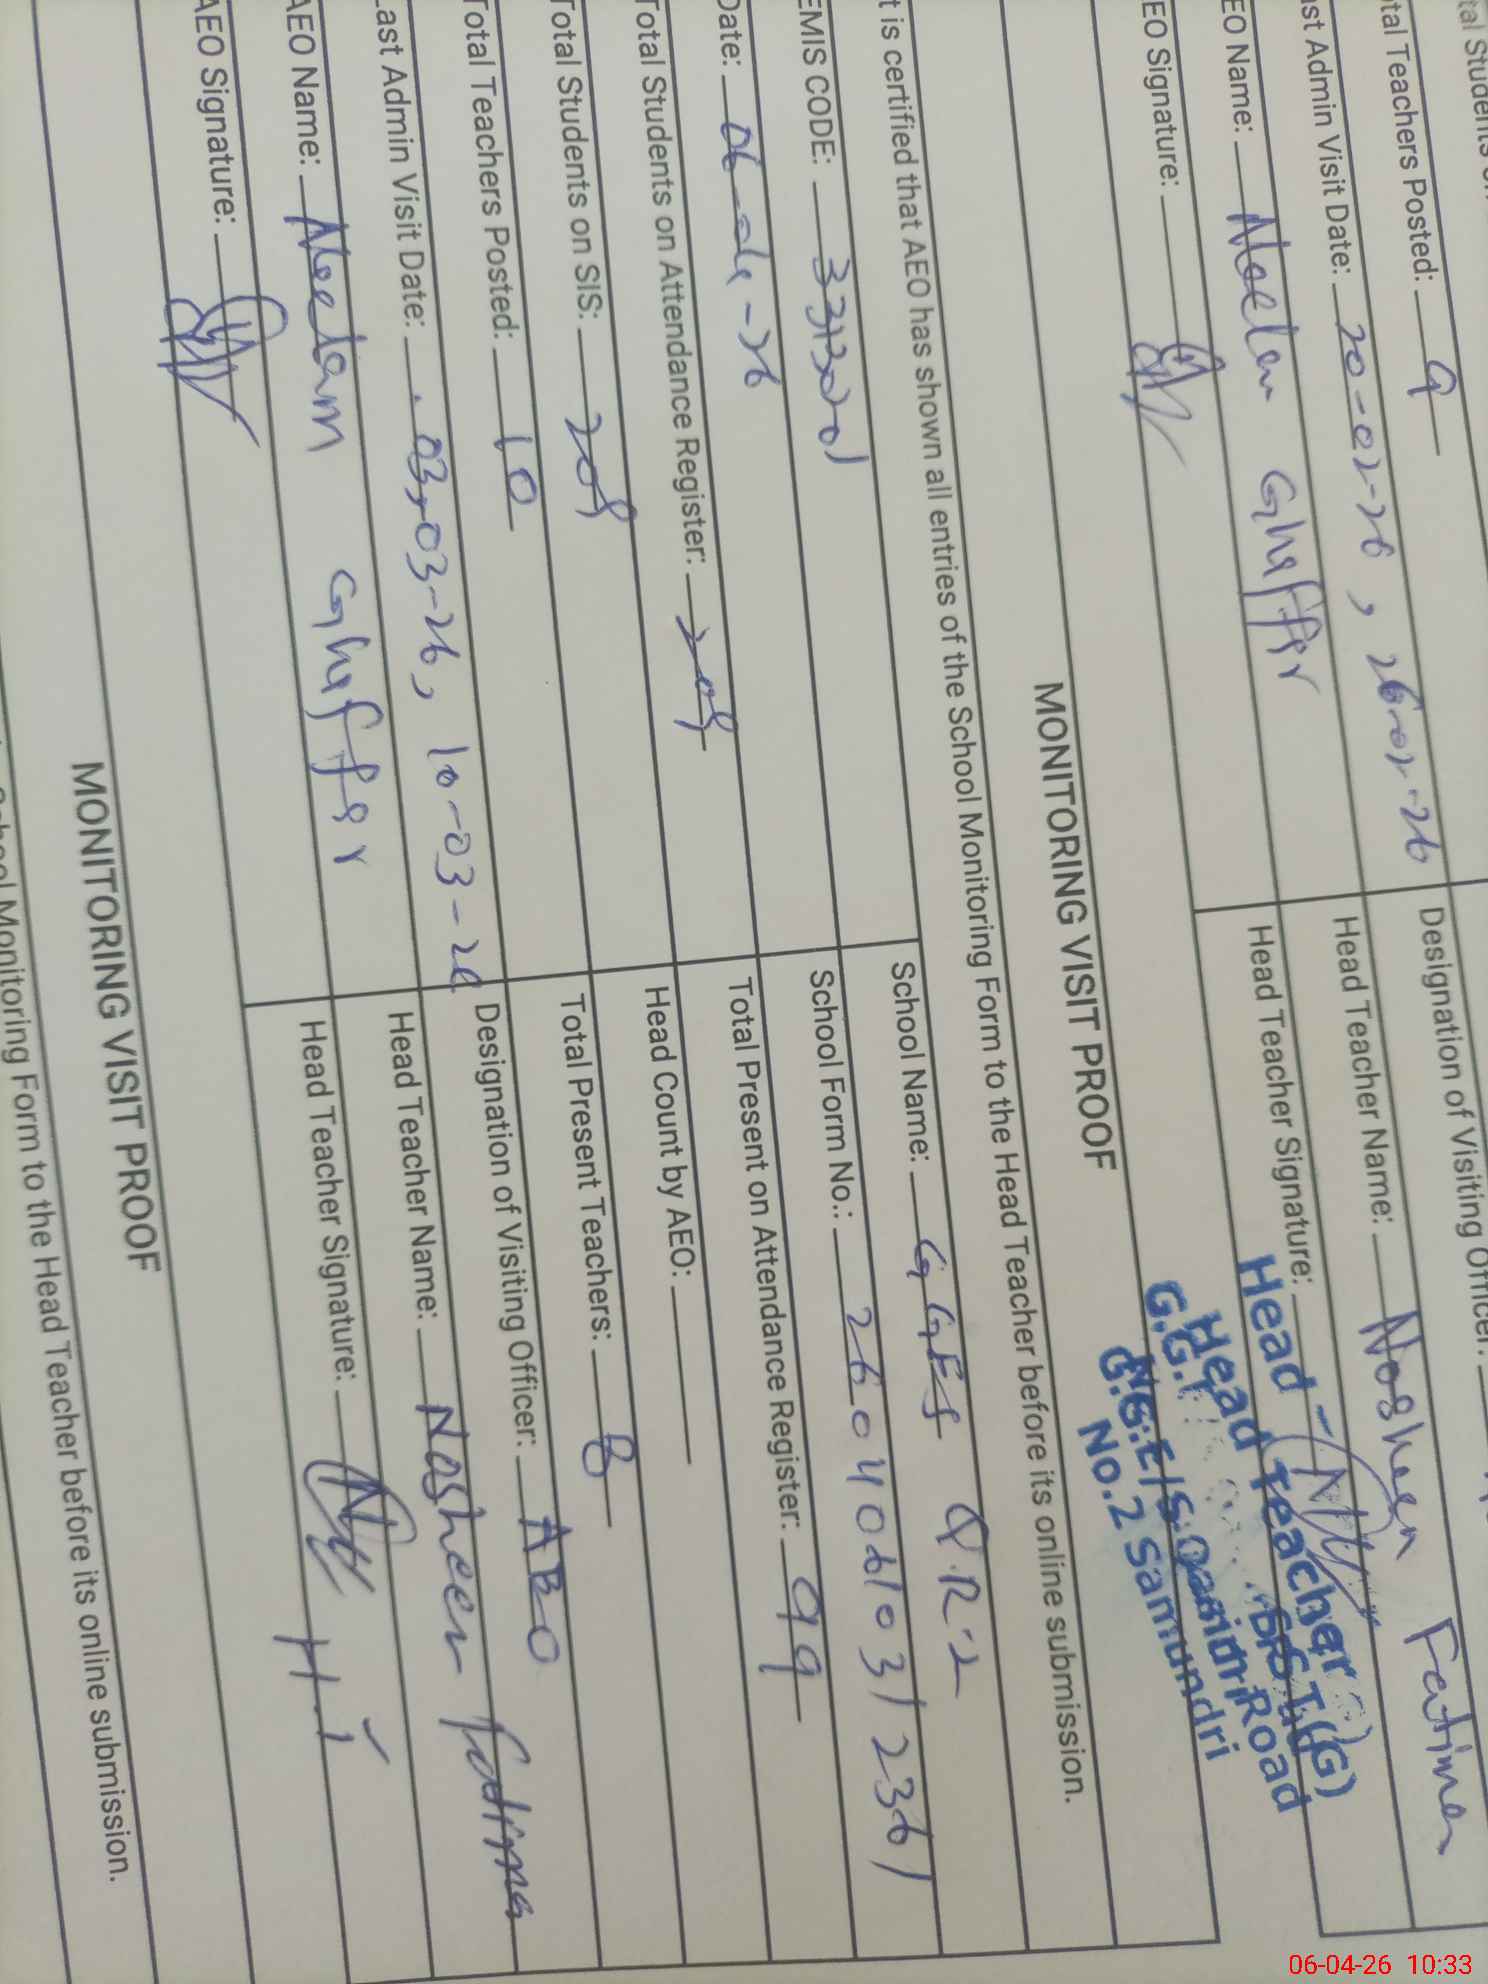 Total Students on
Total Teachers Posted: 9
Designation of Visiting Officer:
Last Admin Visit Date: 20-02-26, 26-02-26
Head Teacher Name: Nosheen Fatima
AEO Name: Neelam Ghaffar
Head Teacher Signature:
AEO Signature:
Head Teacher
Samundri
MONITORING VISIT PROOF
It is certified that AEO has shown all entries of the School Monitoring Form to the Head Teacher before its online submission.
EMIS CODE:
School Name: GGES Q.R-2
Date: 06-04-26
School Form No.:
Total Students on Attendance Register: 208
Total Present on Attendance Register: 99
Total Students on SIS: 208
Head Count by AEO:
Total Teachers Posted: 10
Total Present Teachers: 8
Last Admin Visit Date: 03-03-26, 10-03-26
Designation of Visiting Officer: AEO
AEO Name: Neelam Ghaffar
Head Teacher Name: Nosheen Fatima
AEO Signature:
Head Teacher Signature:
MONITORING VISIT PROOF
School Monitoring Form to the Head Teacher before its online submission.
06-04-26 10:33